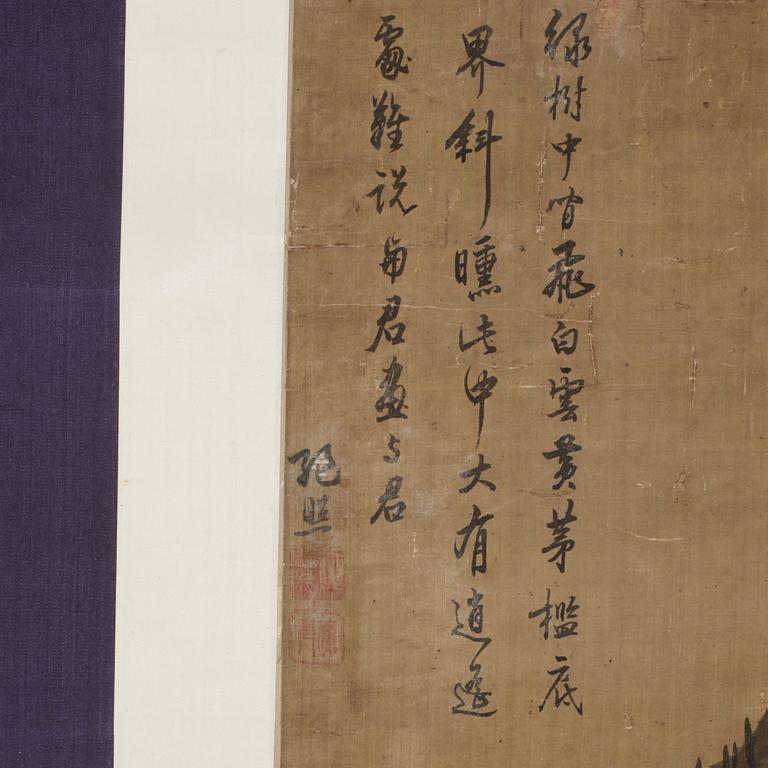 緑樹中間飛白雲黄茅檻底
界斜曛此中大有逍遥
處難説與君畫与君
照